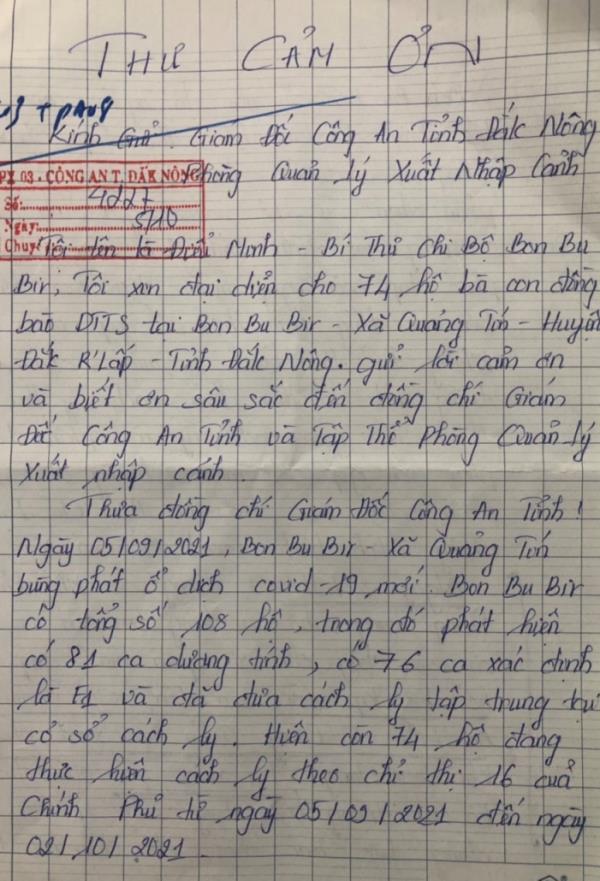 THƯ CẢM ƠN
Kính Gửi. Giám Đốc Công An Tỉnh Đắk Nông
Phòng Quản lý Xuất Nhập Cảnh
PX 03 - CÔNG AN T. ĐĂK NÔNG
Số:
Ngày: 5/10
Chuy
Tôi tên là Điểu Minh - Bí Thư Chi Bộ Bon Bu
Bir, Tôi xin đại diện cho 74 hộ bà con đồng
bào DTTS tại Bon Bu Bir - Xã Quảng Tín - Huyện
Đắk R'Lấp - Tỉnh Đắk Nông. gửi lời cảm ơn
và biết ơn sâu sắc đến đồng chí Giám
Đốc Công An Tỉnh và Tập Thể Phòng Quản lý
Xuất nhập cảnh.
Thưa đồng chí Giám Đốc Công An Tỉnh!
Ngày 05/09/2021, Bon Bu Bir - Xã Quảng Tín
bùng phát ổ dịch covid-19 mới. Bon Bu Bir
có tổng số 108 hộ, trong đó phát hiện
có 81 ca dương tính, có 76 ca xác định
là F1 và đã đưa cách ly tập trung tại
cơ sở cách ly. Hiện còn 74 hộ đang
thực hiện cách ly theo chỉ thị 16 của
Chính Phủ từ ngày 05/09/2021 đến ngày
02/10/2021.